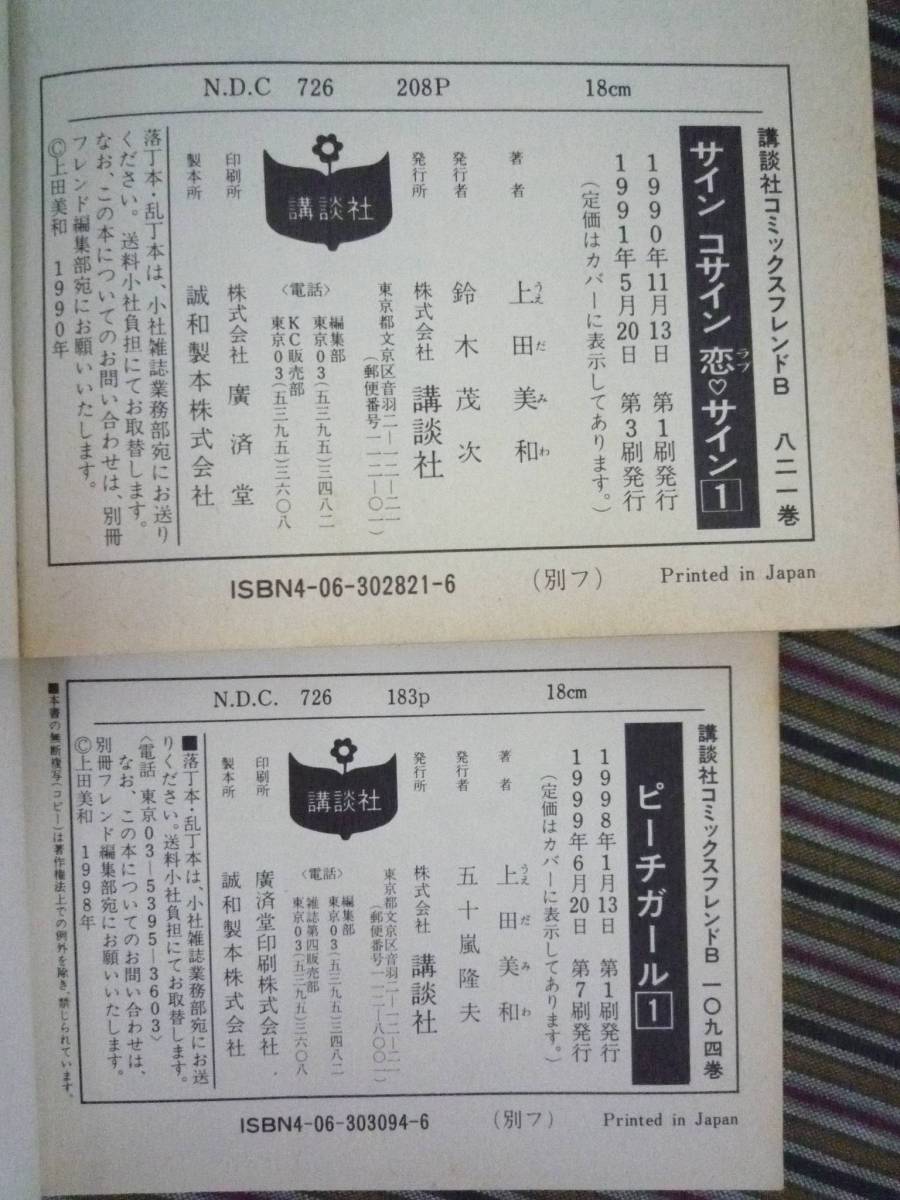 N.D.C 726 208P 18cm
講談社コミックスフレンドB 八二一巻
サイン コサイン 恋♡サイン 1
ラブ
1990年11月13日 第1刷発行
1991年5月20日 第3刷発行
(定価はカバーに表示してあります。)
著者 上田美和
うえ だ み わ
発行者 鈴木茂次
発行所 株式会社 講談社
東京都文京区音羽二―一二―二一
(郵便番号一一二―〇一)
講談社
〈電話〉
編集部
東京03(五三九五)三四八二
KC販売部
東京03(五三九五)三六〇八
印刷所 株式会社 廣済堂
製本所 誠和製本株式会社
落丁本・乱丁本は、小社雑誌業務部宛にお送り
ください。送料小社負担にてお取替します。
なお、この本についてのお問い合わせは、別冊
フレンド編集部宛にお願いいたします。
©上田美和 1990年
ISBN4-06-302821-6 (別フ) Printed in Japan
N.D.C. 726 183p 18cm
講談社コミックスフレンドB 一〇九四巻
ピーチガール 1
1998年1月13日 第1刷発行
1999年6月20日 第7刷発行
(定価はカバーに表示してあります。)
著者 上田美和
うえ だ み わ
発行者 五十嵐隆夫
発行所 株式会社 講談社
東京都文京区音羽二―一二―二一
(郵便番号一一二―八〇〇一)
講談社
〈電話〉
編集部
東京03(五三九五)三四八二
雑誌第四販売部
東京03(五三九五)三六〇八
印刷所 廣済堂印刷株式会社
製本所 誠和製本株式会社
■落丁本・乱丁本は、小社雑誌業務部宛にお送
りください。送料小社負担にてお取替します。
〈電話 東京03―5395―3603〉
なお、この本についてのお問い合わせは、
別冊フレンド編集部宛にお願いいたします。
©上田美和 1998年
■本書の無断複写(コピー)は著作権法上での例外を除き、禁じられています。
ISBN4-06-303094-6 (別フ) Printed in Japan